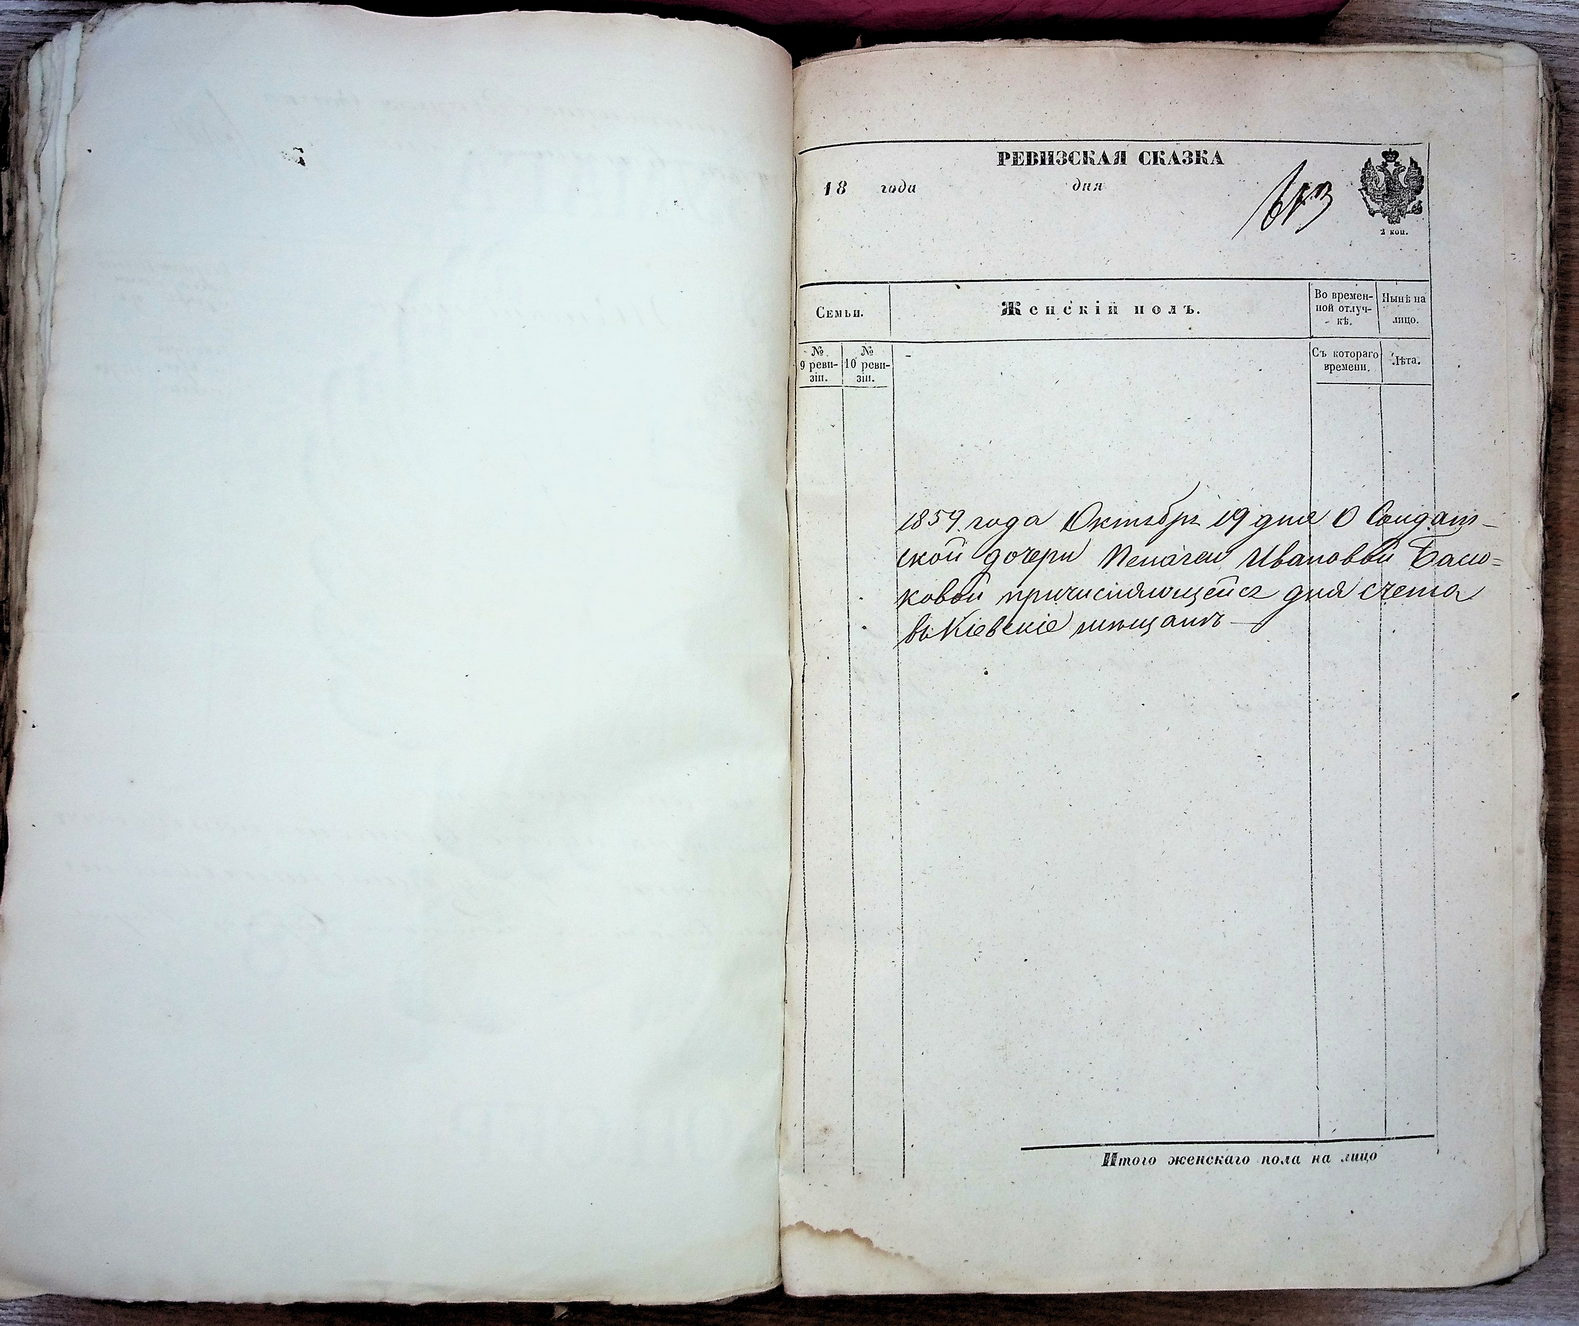 РЕВИЗСКАЯ СКАЗКА
18 года дня
2 коп.
Семьи.
Женскій полъ.
Во времен-
ной отлуч-
кѣ.
Нынѣ на
лицо.
№
9 реви-
зіи.
№
10 реви-
зіи.
Съ котораго
времени.
Лѣта.
1859 года Октября 19 дня О Солдат-
ской дочери Пелагеи Ивановой
ковой причисляющейся для счета
въ Кіевскіе мѣщане
Итого женскаго пола на лицо